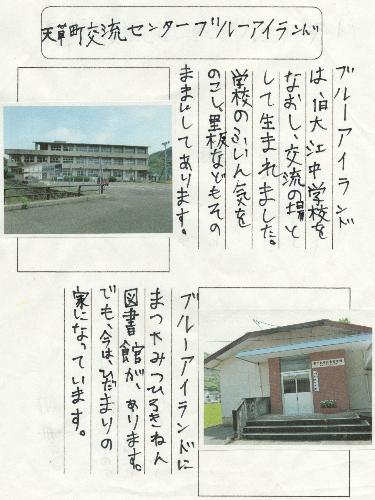 天草町交流センターブルーアイランド
ブルーアイランド
は、旧大江中学校を
なおし、交流の場と
して生まれました。
学校のふいん気を
のこし、黒板などもその
ままにしてあります。
ブルーアイランドに
まつだみつひろきねん
図書館があります。
でも、今は、ひだまりの
家になっています。